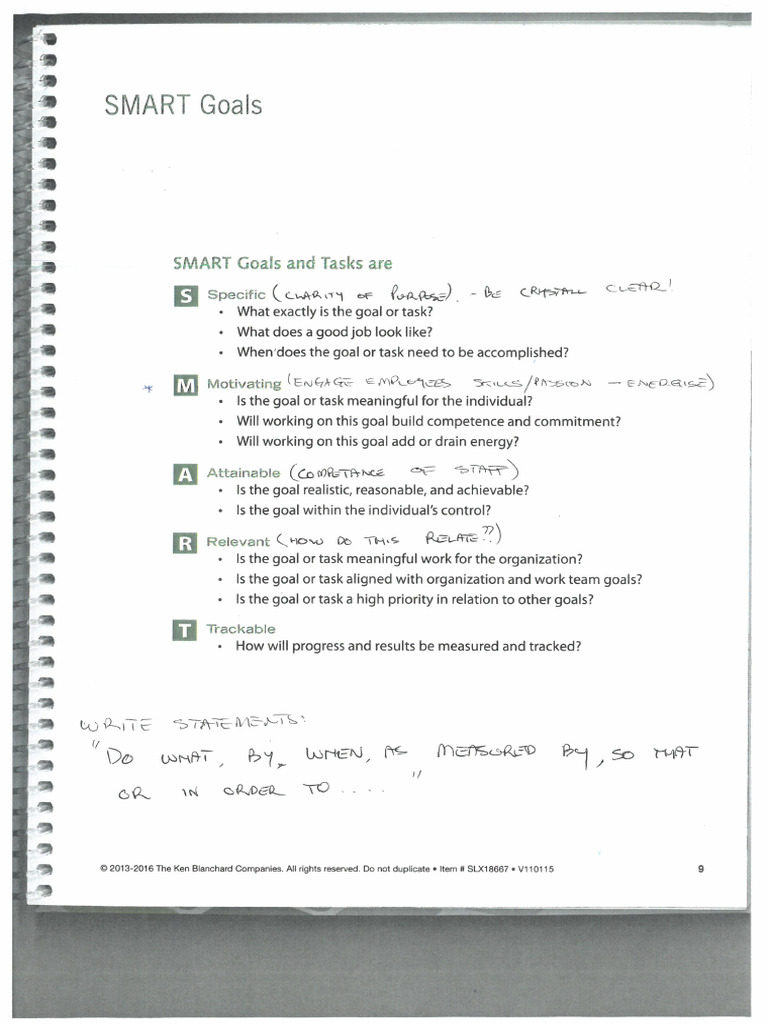 SMART Goals
SMART Goals and Tasks are
S Specific (CLARITY OF PURPOSE). - BE CRYSTALL CLEAR!
• What exactly is the goal or task?
• What does a good job look like?
• When does the goal or task need to be accomplished?
* M Motivating (ENGAGE EMPLOYEES SKILLS/PASSION - ENERGISE)
• Is the goal or task meaningful for the individual?
• Will working on this goal build competence and commitment?
• Will working on this goal add or drain energy?
A Attainable (COMPETANCE OF STAFF)
• Is the goal realistic, reasonable, and achievable?
• Is the goal within the individual's control?
R Relevant (HOW DO THIS RELATE??)
• Is the goal or task meaningful work for the organization?
• Is the goal or task aligned with organization and work team goals?
• Is the goal or task a high priority in relation to other goals?
T Trackable
• How will progress and results be measured and tracked?
WRITE STATEMENTS:
"DO WHAT, BY, WHEN, AS MEASURED BY, SO THAT
OR IN ORDER TO .... "
© 2013-2016 The Ken Blanchard Companies. All rights reserved. Do not duplicate • Item # SLX18667 • V110115 9